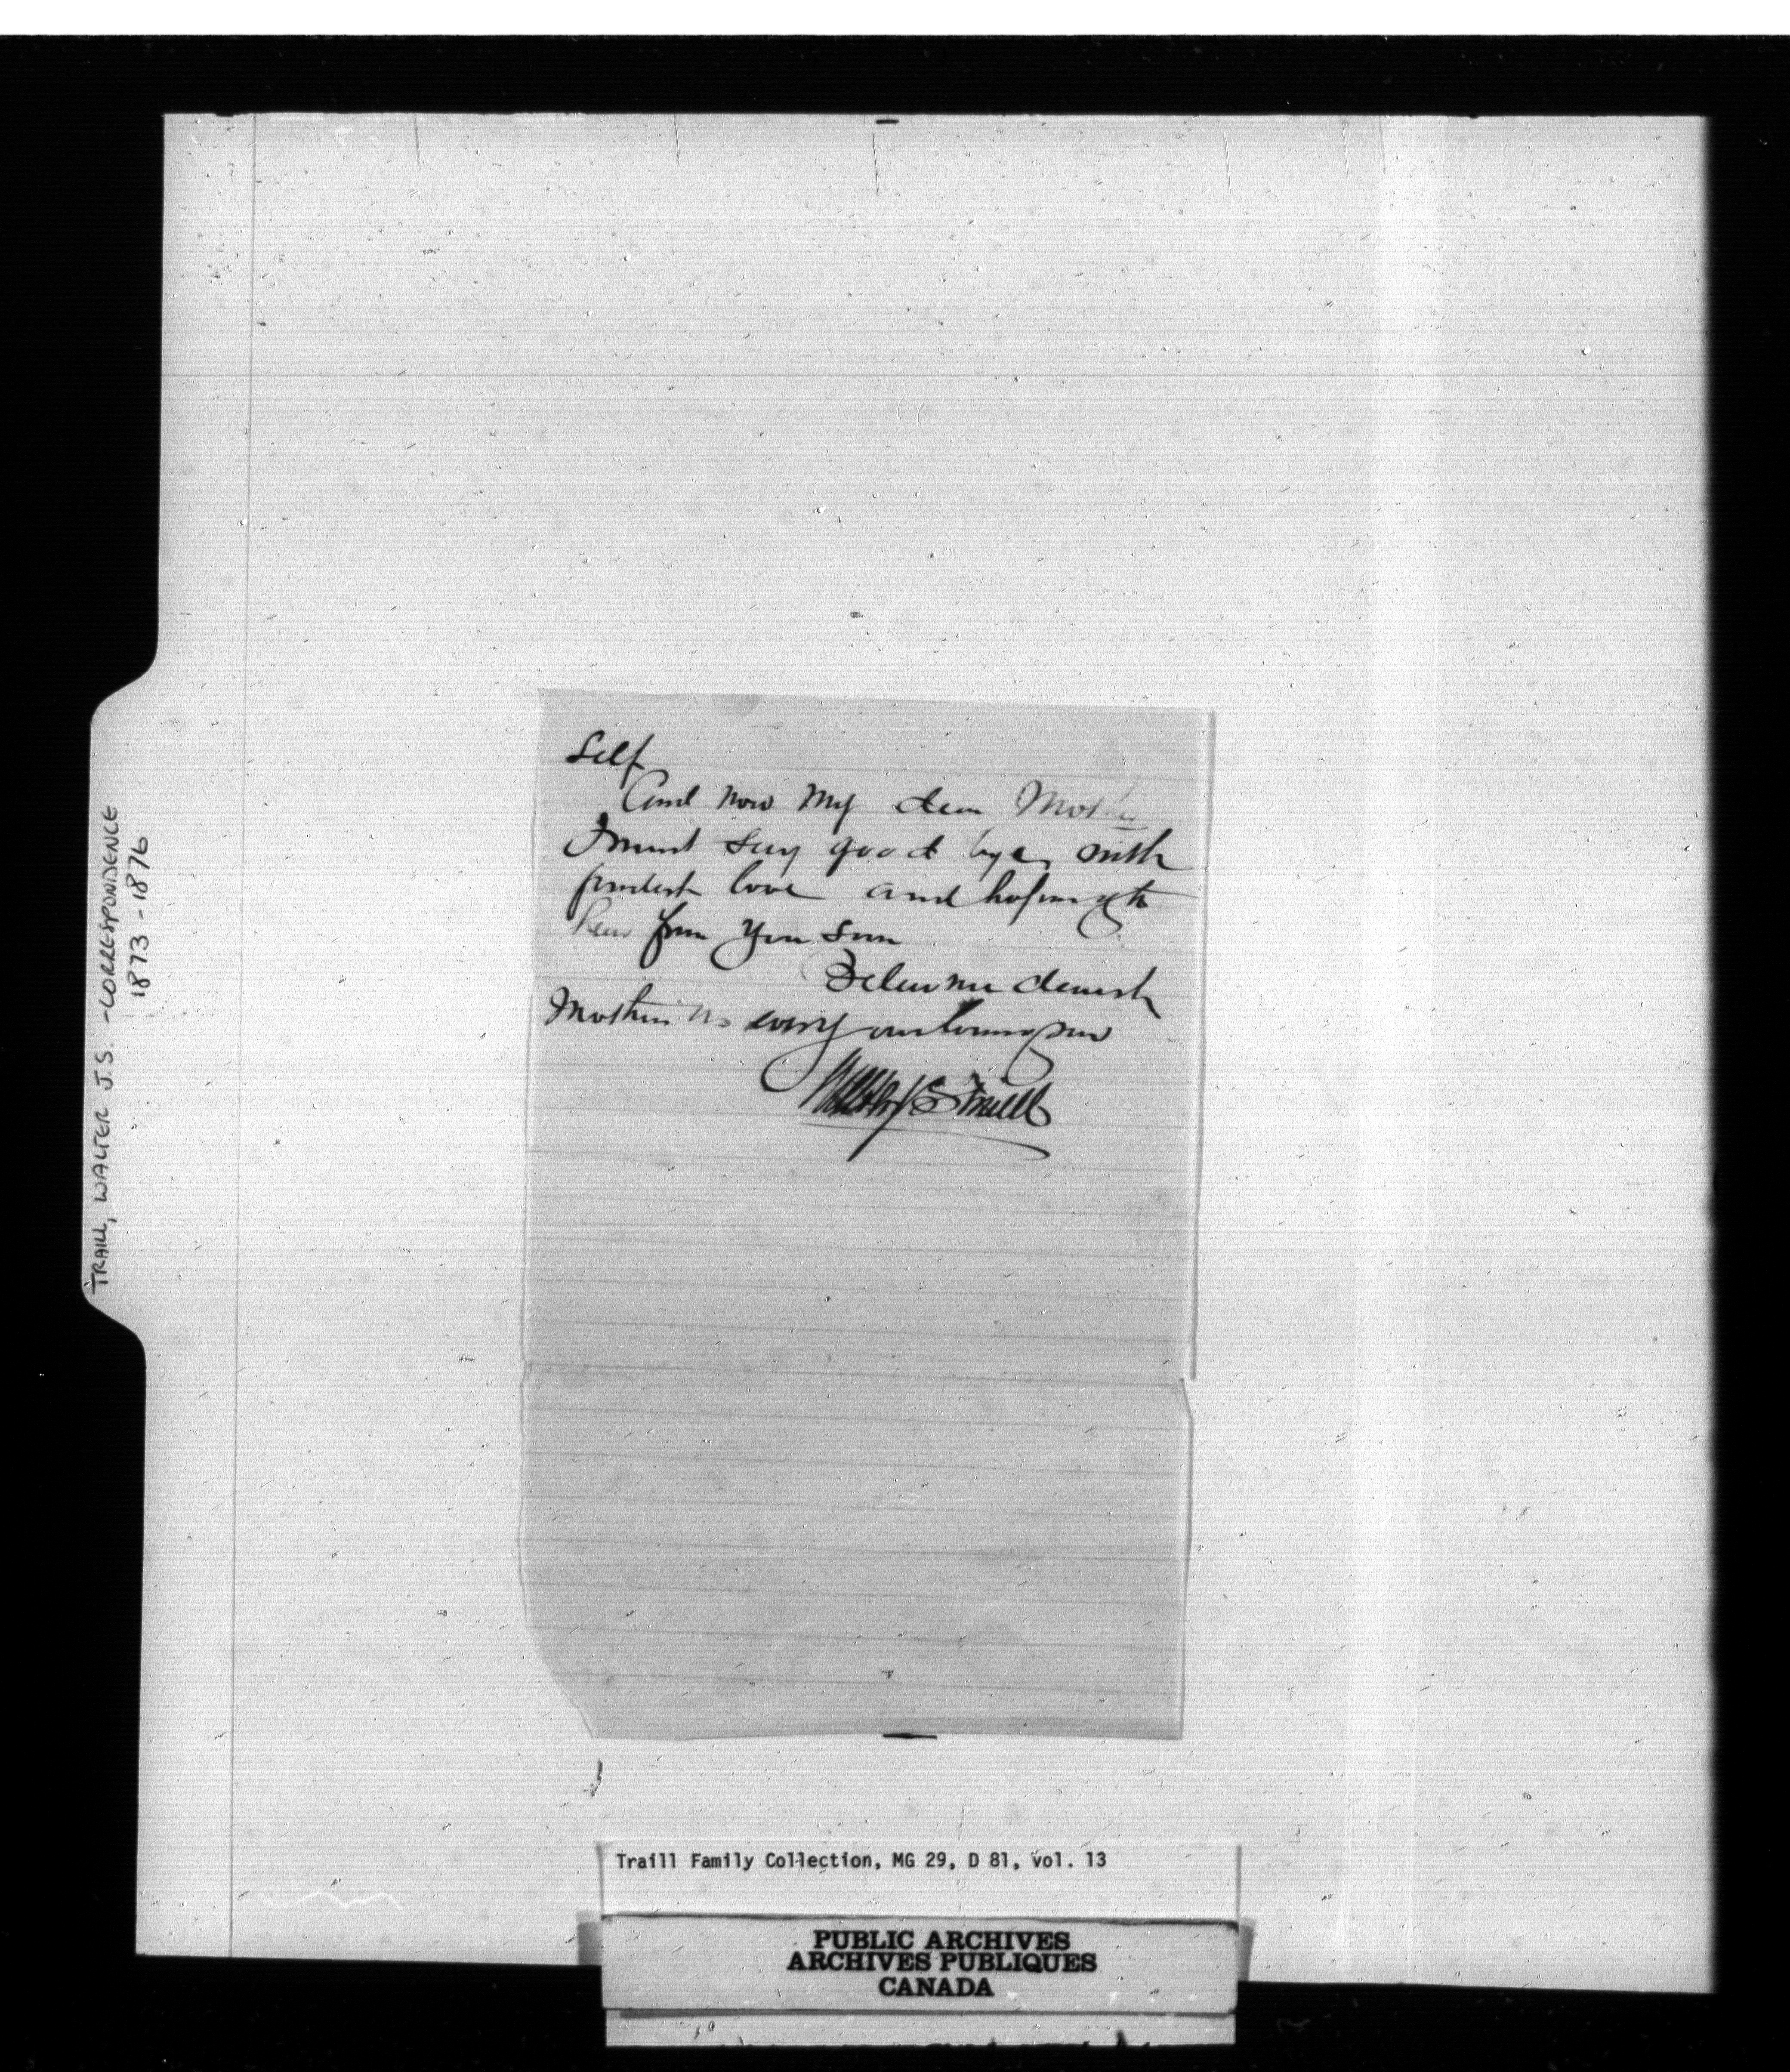 TRAILL, WALTER J.S. - CORRESPONDENCE
1873 - 1876
Self
And now my dear Mother
I must say good bye with
fondest love and hoping to
hear from you soon
Believe me dearest
Mother as every our loving son
Walter J S Traill
Traill Family Collection, MG 29, D 81, vol. 13
PUBLIC ARCHIVES
ARCHIVES PUBLIQUES
CANADA